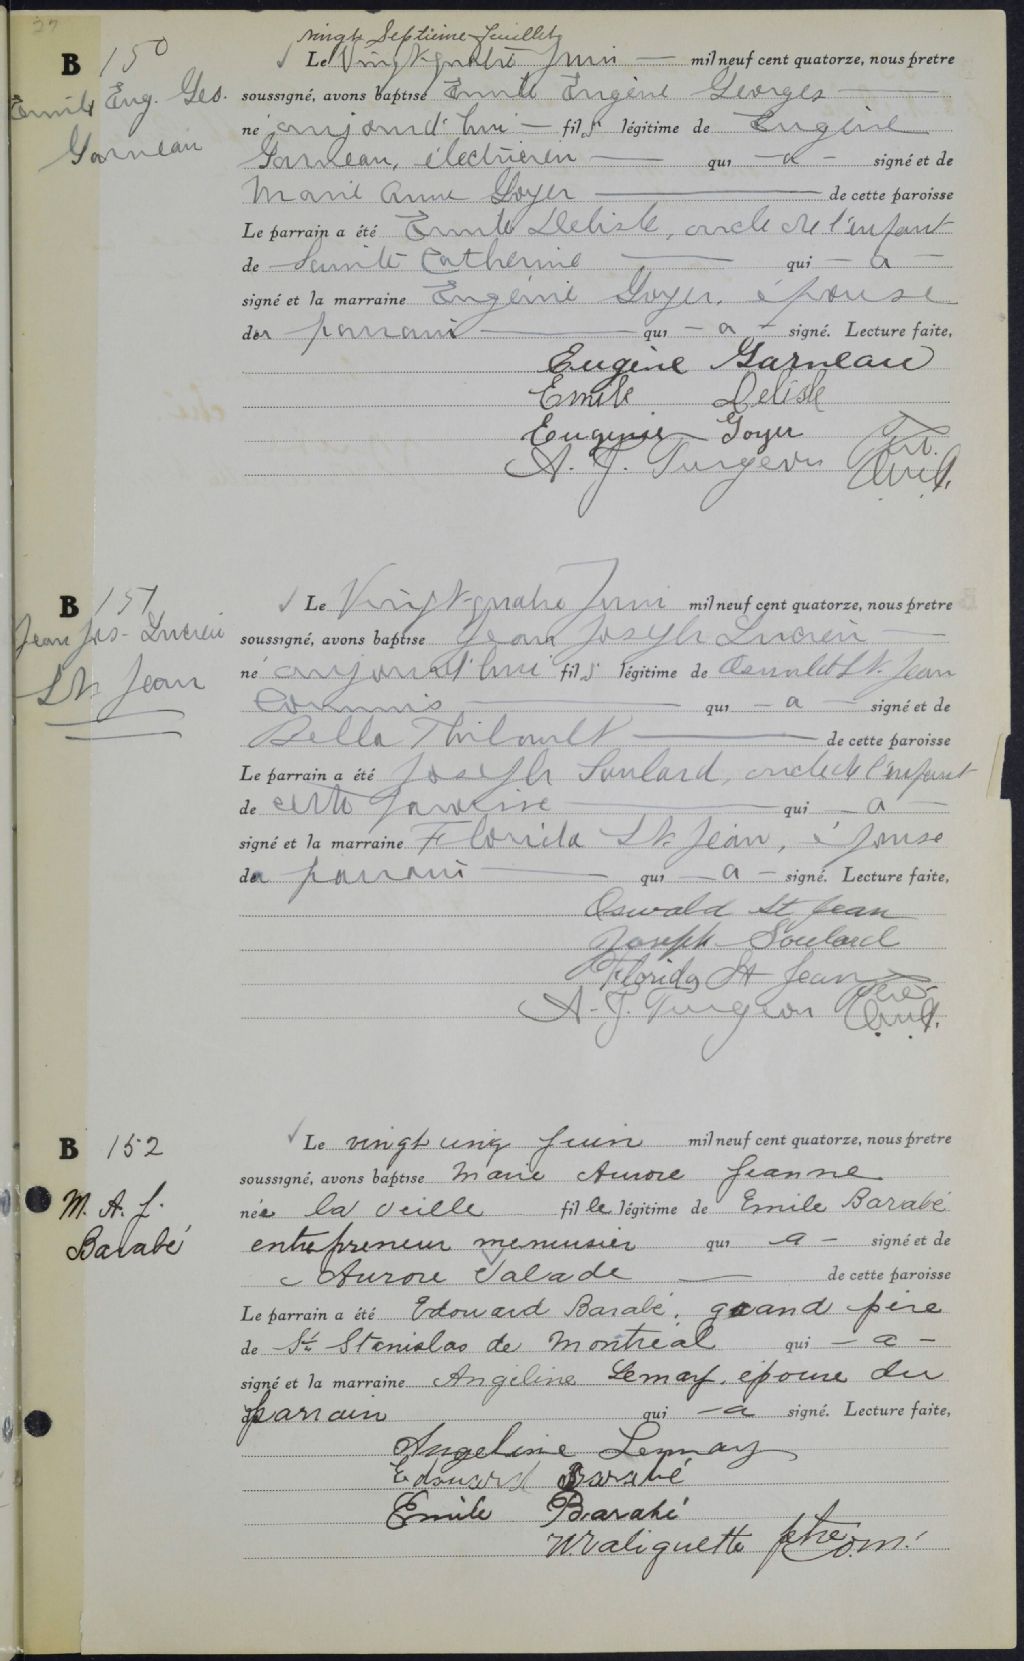 27
vingt Septieme Juillet
B 150
Le Vingt-quatre Juin — mil neuf cent quatorze, nous prêtre
Emile Eug. Geo.
soussigné, avons baptisé Emile Eugène Georges
né aujourd'hui — fils légitime de Eugène
Garneau
Garneau, électricien — qui — a — signé et de
Marie Anne Goyer — de cette paroisse
Le parrain a été Emile Delisle, oncle de l'enfant
de Sainte Catherine — qui — a —
signé et la marraine Eugénie Goyer, épouse
du parrain — qui — a — signé. Lecture faite,
Eugène Garneau
Emile Delisle
Eugenie Goyer
A. J. Turgeon Ptre
B 151
Le Vingt-quatre Juin mil neuf cent quatorze, nous prêtre
Jean Jos-Lucien
soussigné, avons baptisé Jean Joseph Lucien
né aujourd'hui fils légitime de Oswald St. Jean
St. Jean
Commis — qui — a — signé et de
Bella Thibault — de cette paroisse
Le parrain a été Joseph Soulard, oncle de l'enfant
de cette paroisse — qui — a —
signé et la marraine Florida St. Jean, épouse
du parrain — qui — a — signé. Lecture faite,
Oswald St Jean
Joseph Soulard
Florida St Jean
A. J. Turgeon Ptre
B 152
Le vingt cinq Juin mil neuf cent quatorze, nous prêtre
soussigné, avons baptisé Marie Aurore Jeanne
M. A. J.
née la veille fille légitime de Emile Barabé
Barabé
entrepreneur menuisier qui — a — signé et de
Aurore Valade — de cette paroisse
Le parrain a été Edouard Barabé, grand père
de St. Stanislas de Montréal qui — a —
signé et la marraine Angéline Lemay, épouse du
parrain qui — a signé. Lecture faite,
Angeline Lemay
Edouard Barabé
Emile Barabé
Waliquette ptre